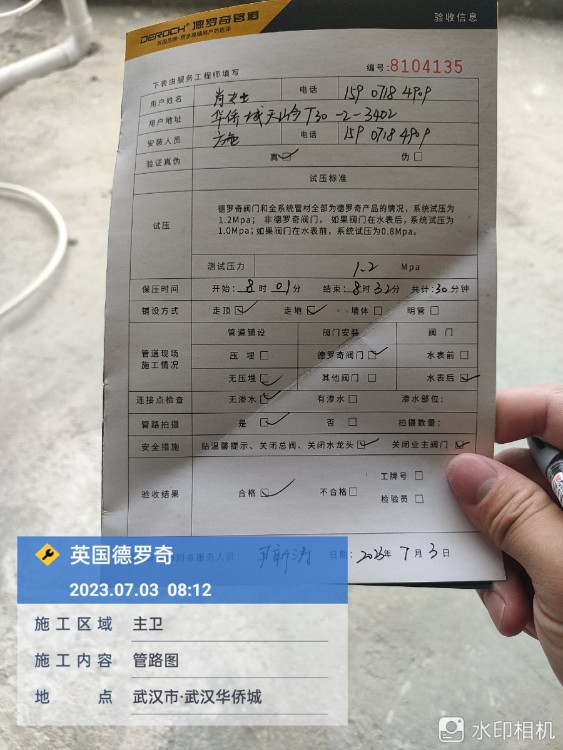 DEROCH® 德罗奇管道
验收信息
下表由服务工程师填写 编号:8104135
用户姓名 肖女士 电话 159 0718 4909
用户地址 华侨城天屿T30-2-3402
安装人员 电话 159 0718 4909
验证真伪 真☑ 伪□
试压标准
试压
德罗奇阀门和全系统管材全部为德罗奇产品的情况，系统试压为
1.2Mpa； 非德罗奇阀门， 如果阀门在水表后，系统试压为
1.0Mpa；如果阀门在水表前，系统试压为0.8Mpa。
测试压力 1.2 Mpa
保压时间 开始: 8 时 01 分 结束: 8 时 32 分 共计: 30 分钟
铺设方式 走顶☑ 走地☑ 墙体□ 明管□
管道现场施工情况
管道铺设 阀门安装 阀门
压埋□ 德罗奇阀门☑ 水表前□
无压埋☑ 其他阀门□ 水表后☑
连接点检查 无渗水☑ 有渗水□ 渗水部位:
管路拍摄 是☑ 否□ 拍摄数量:
安全措施 贴温馨提示、关闭总阀、关闭水龙头☑ 关闭业主阀门☑
验收结果 合格☑ 不合格□ 工牌号□
检验员□
服务人员: 日期: 2023年 7月 3日
英国德罗奇
2023.07.03 08:12
施工区域 主卫
施工内容 管路图
地点 武汉市·武汉华侨城
水印相机